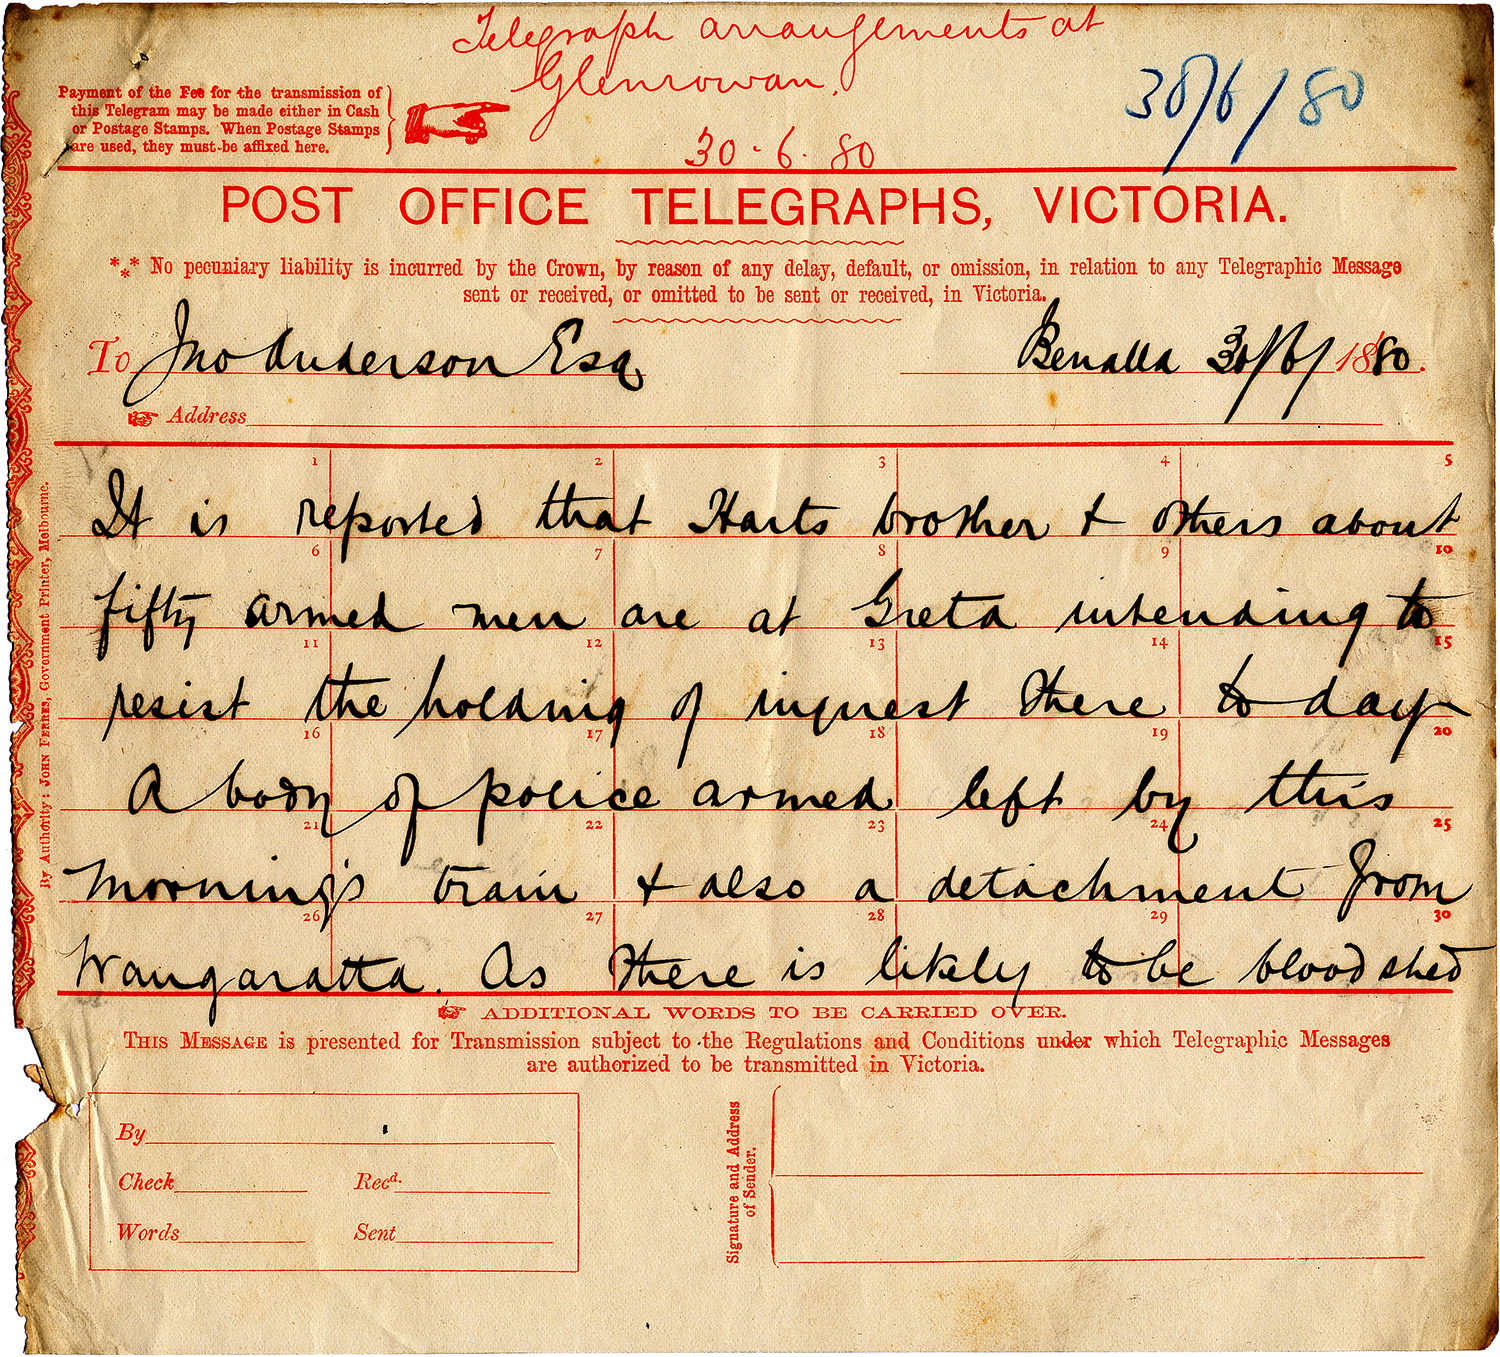 Telegraph arrangements at
Glenrowan.
30/6/80
30.6.80
Payment of the Fee for the transmission of
this Telegram may be made either in Cash
or Postage Stamps. When Postage Stamps
are used, they must be affixed here.
POST OFFICE TELEGRAPHS, VICTORIA.
*** No pecuniary liability is incurred by the Crown, by reason of any delay, default, or omission, in relation to any Telegraphic Message
sent or received, or omitted to be sent or received, in Victoria.
To Jno Anderson Esq Benalla 30/6/ 1880.
Address
1 2 3 4 5
It is reported that Harts brother & others about
6 7 8 9 10
fifty armed men are at Greta intending to
11 12 13 14 15
resist the holding of inquest there to day
16 17 18 19 20
A body of police armed left by this
21 22 23 24 25
morning's train & also a detachment from
26 27 28 29 30
Wangaratta. As there is likely to be bloodshed
ADDITIONAL WORDS TO BE CARRIED OVER.
THIS MESSAGE is presented for Transmission subject to the Regulations and Conditions under which Telegraphic Messages
are authorized to be transmitted in Victoria.
By
Check Recd.
Words Sent
Signature and Address
of Sender.
By Authority: JOHN FERRES, Government Printer, Melbourne.